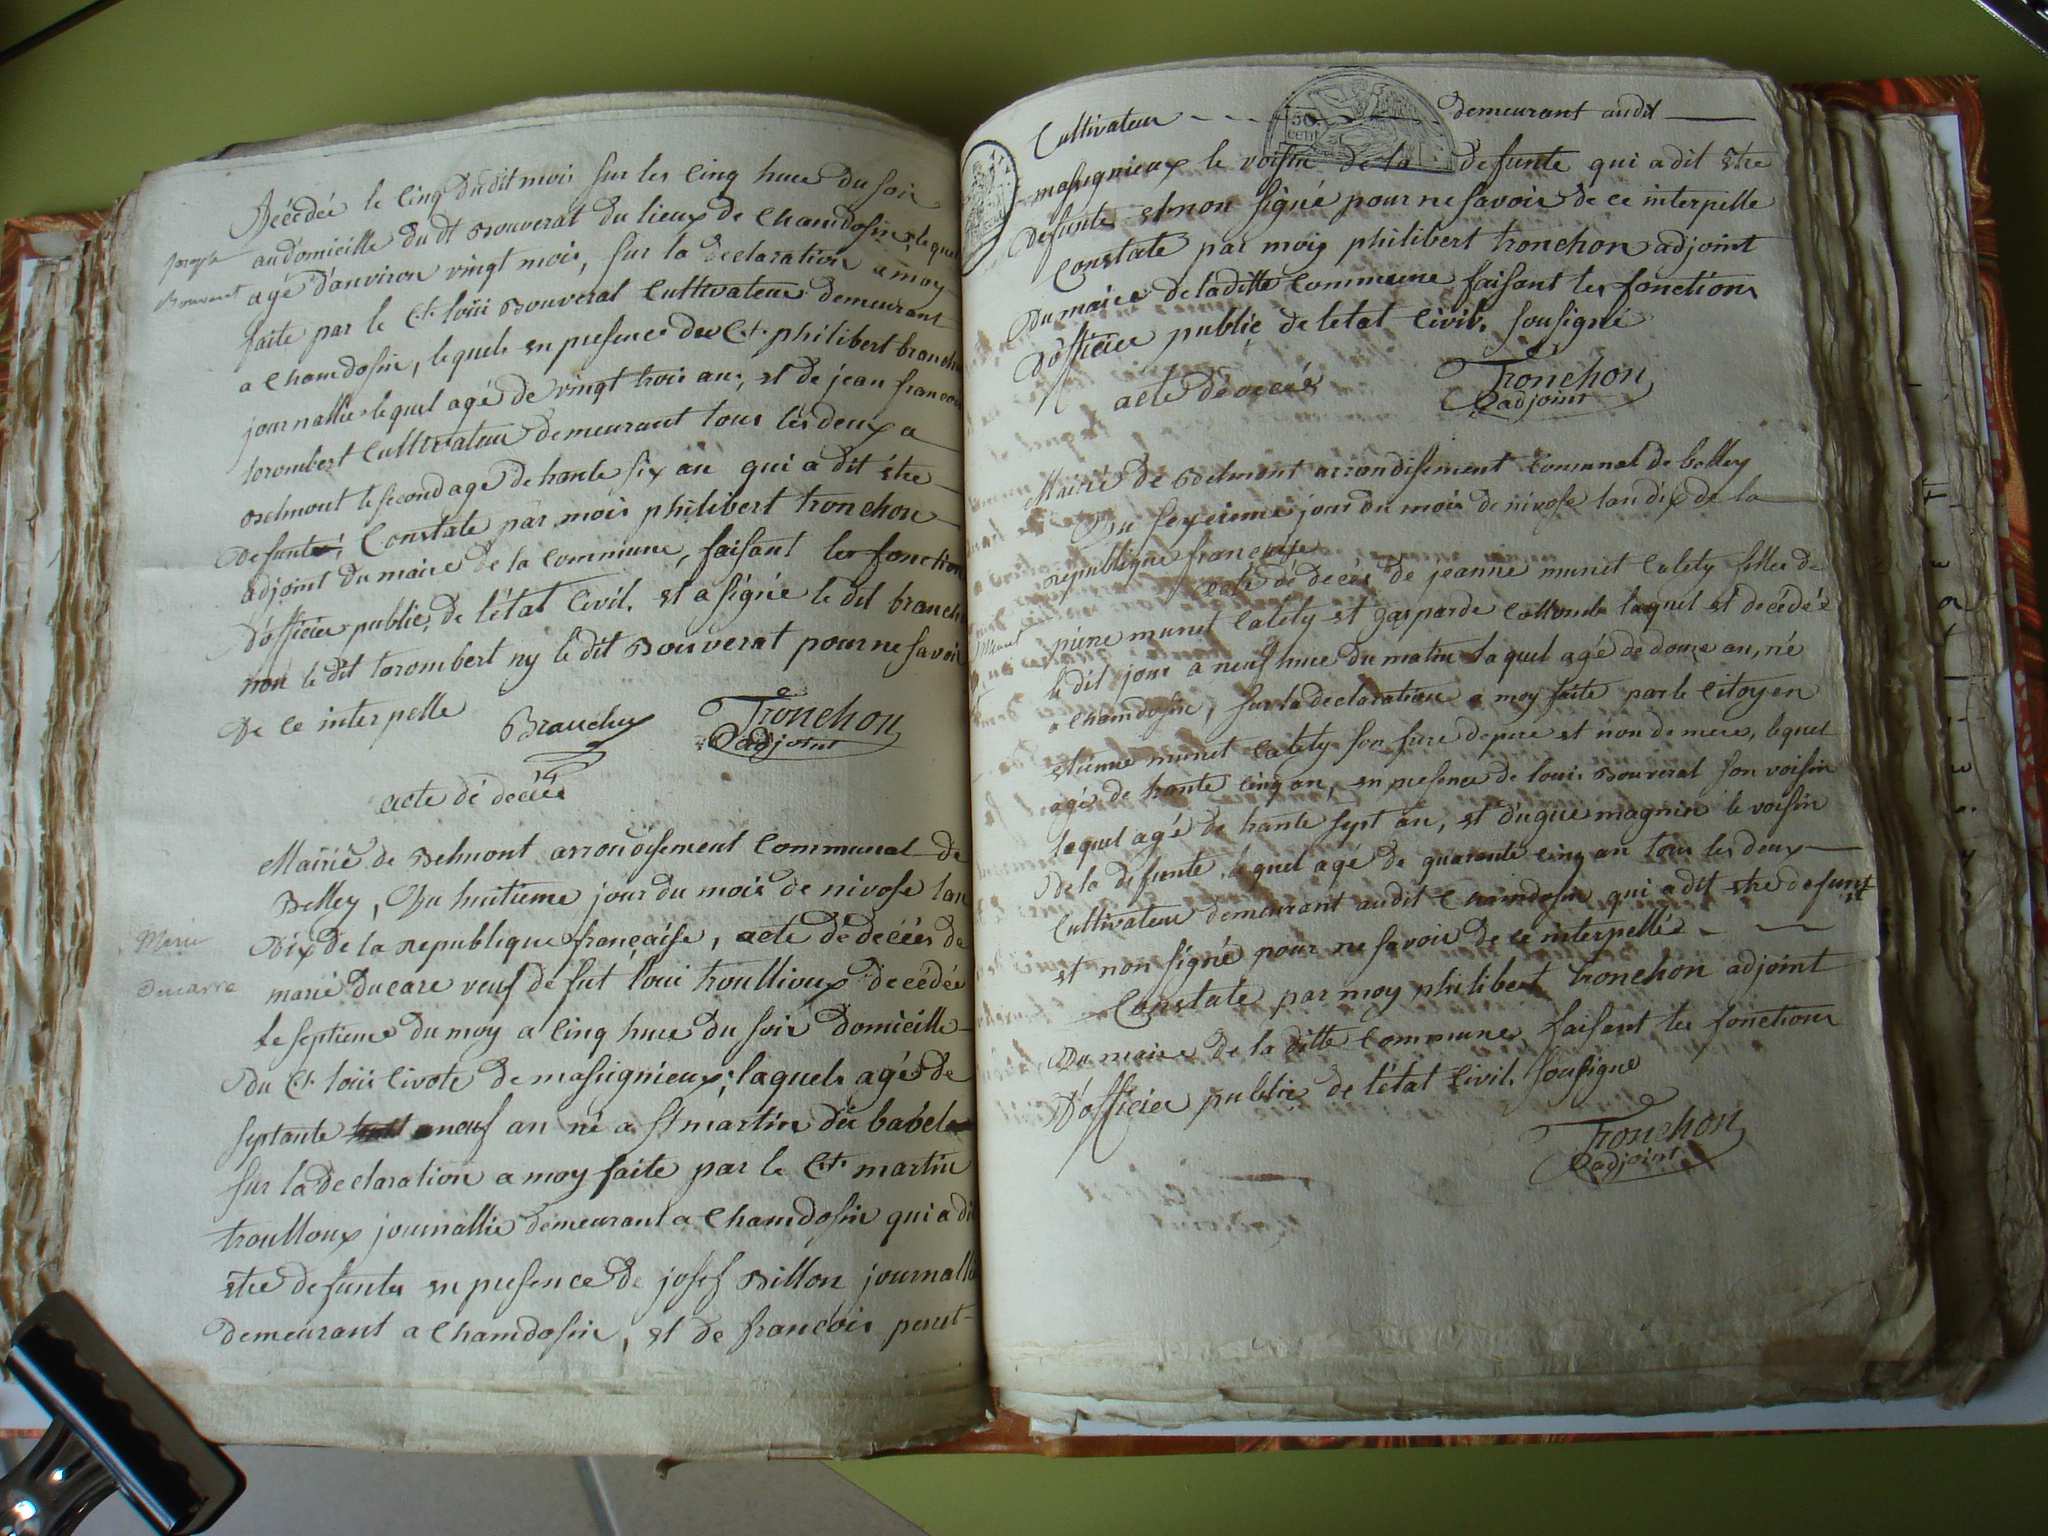 Décédée le cinq dudit mois sur les cinq hure du soir
au domicille du dt Bouverat du lieux de Chamdosin, le quel
Joseph
Bouverat
agé d'anviron vingt mois, sur la declaration a moy
faite par le Ct. loüis Bouverat Cultivateur demeurant
a Chamdosin, lequels en presence du Ct. philibert branche
journallie lequel agé de vingt trois an, et de jean francois
torombert Cultivateur demeurant tous les deux a
Belmont le second agé de trante six an qui a dit être
defunte, Constate par mois philibert tronchon
adjoint du maire de la commune, faisant les fonction
D'officier public, de l'état Civil, et a signé le dit branche
non le dit torombert ny le dit Bouverat pour ne savoir
De ce interpelle
Branche
Tronchon
adjoint
acte dé decés
Mairie de Belmont arrondisement Communal de
Belley, Du huitieme jour du mois de nivose lan
Marie
Ducarre
Dix de la republique française, acte dé decées de
marie ducare veuf de fut loui troullioux decédée
le septieme du moy a cinq hure du soir domicille
du Ct. loüis livote de massignieux, laquels agés de
septante neuf an né a St martin de babel
sur la declaration a moy faite par le Ct. martin
troulloux journallie demeurant a Chamdosin qui a di
etre defuntes en presence de josef Billon journallie
demeurant a Chamdosin, et de francois peret
Cultivateur demeurant audit
50
cent
massignieux le voisin de la defunte qui a dit etre
defunte et non signé pour ne savoir de ce interpelle
Constate par mois philibert tronchon adjoint
Du maire de laditte Commune faisant les fonctions
D'officier public de l'etat Civil, sousigné
Tronchon
adjoint
acte dé decés
Mairie de Belmont arrondisement Comunal de belley
Du seyzieme jour du mois de nivose lan dix de la
republique française
acte dé decés de jeanne munet Catety filles de
Munet
pierre munet Catety et gasparde Collomb laquel et decédée
le dit jour a neuf hure du matin laquel agé de douze an, né
a Chamdosin, sur la declaration a moy faite par le Citoyen
etienne munet Catety son frere de pere et non de mere, lequel
agés de trante cinq an, en presence de louis Bouverat son voisin
lequel agé de trante sept an, et dugue magnin le voisin
de la defunte lequel agé de quarante cinq an tous les deux
Cultivateur demeurant audit Chamdosin qui a dit etre defunt
et non signé pour ne savoir de ce interpellé
Constate par moy philibert tronchon adjoint
Du maire de la ditte Commune, faisant les fonctions
D'officier public de l'état Civil, sousigne
Tronchon
adjoint